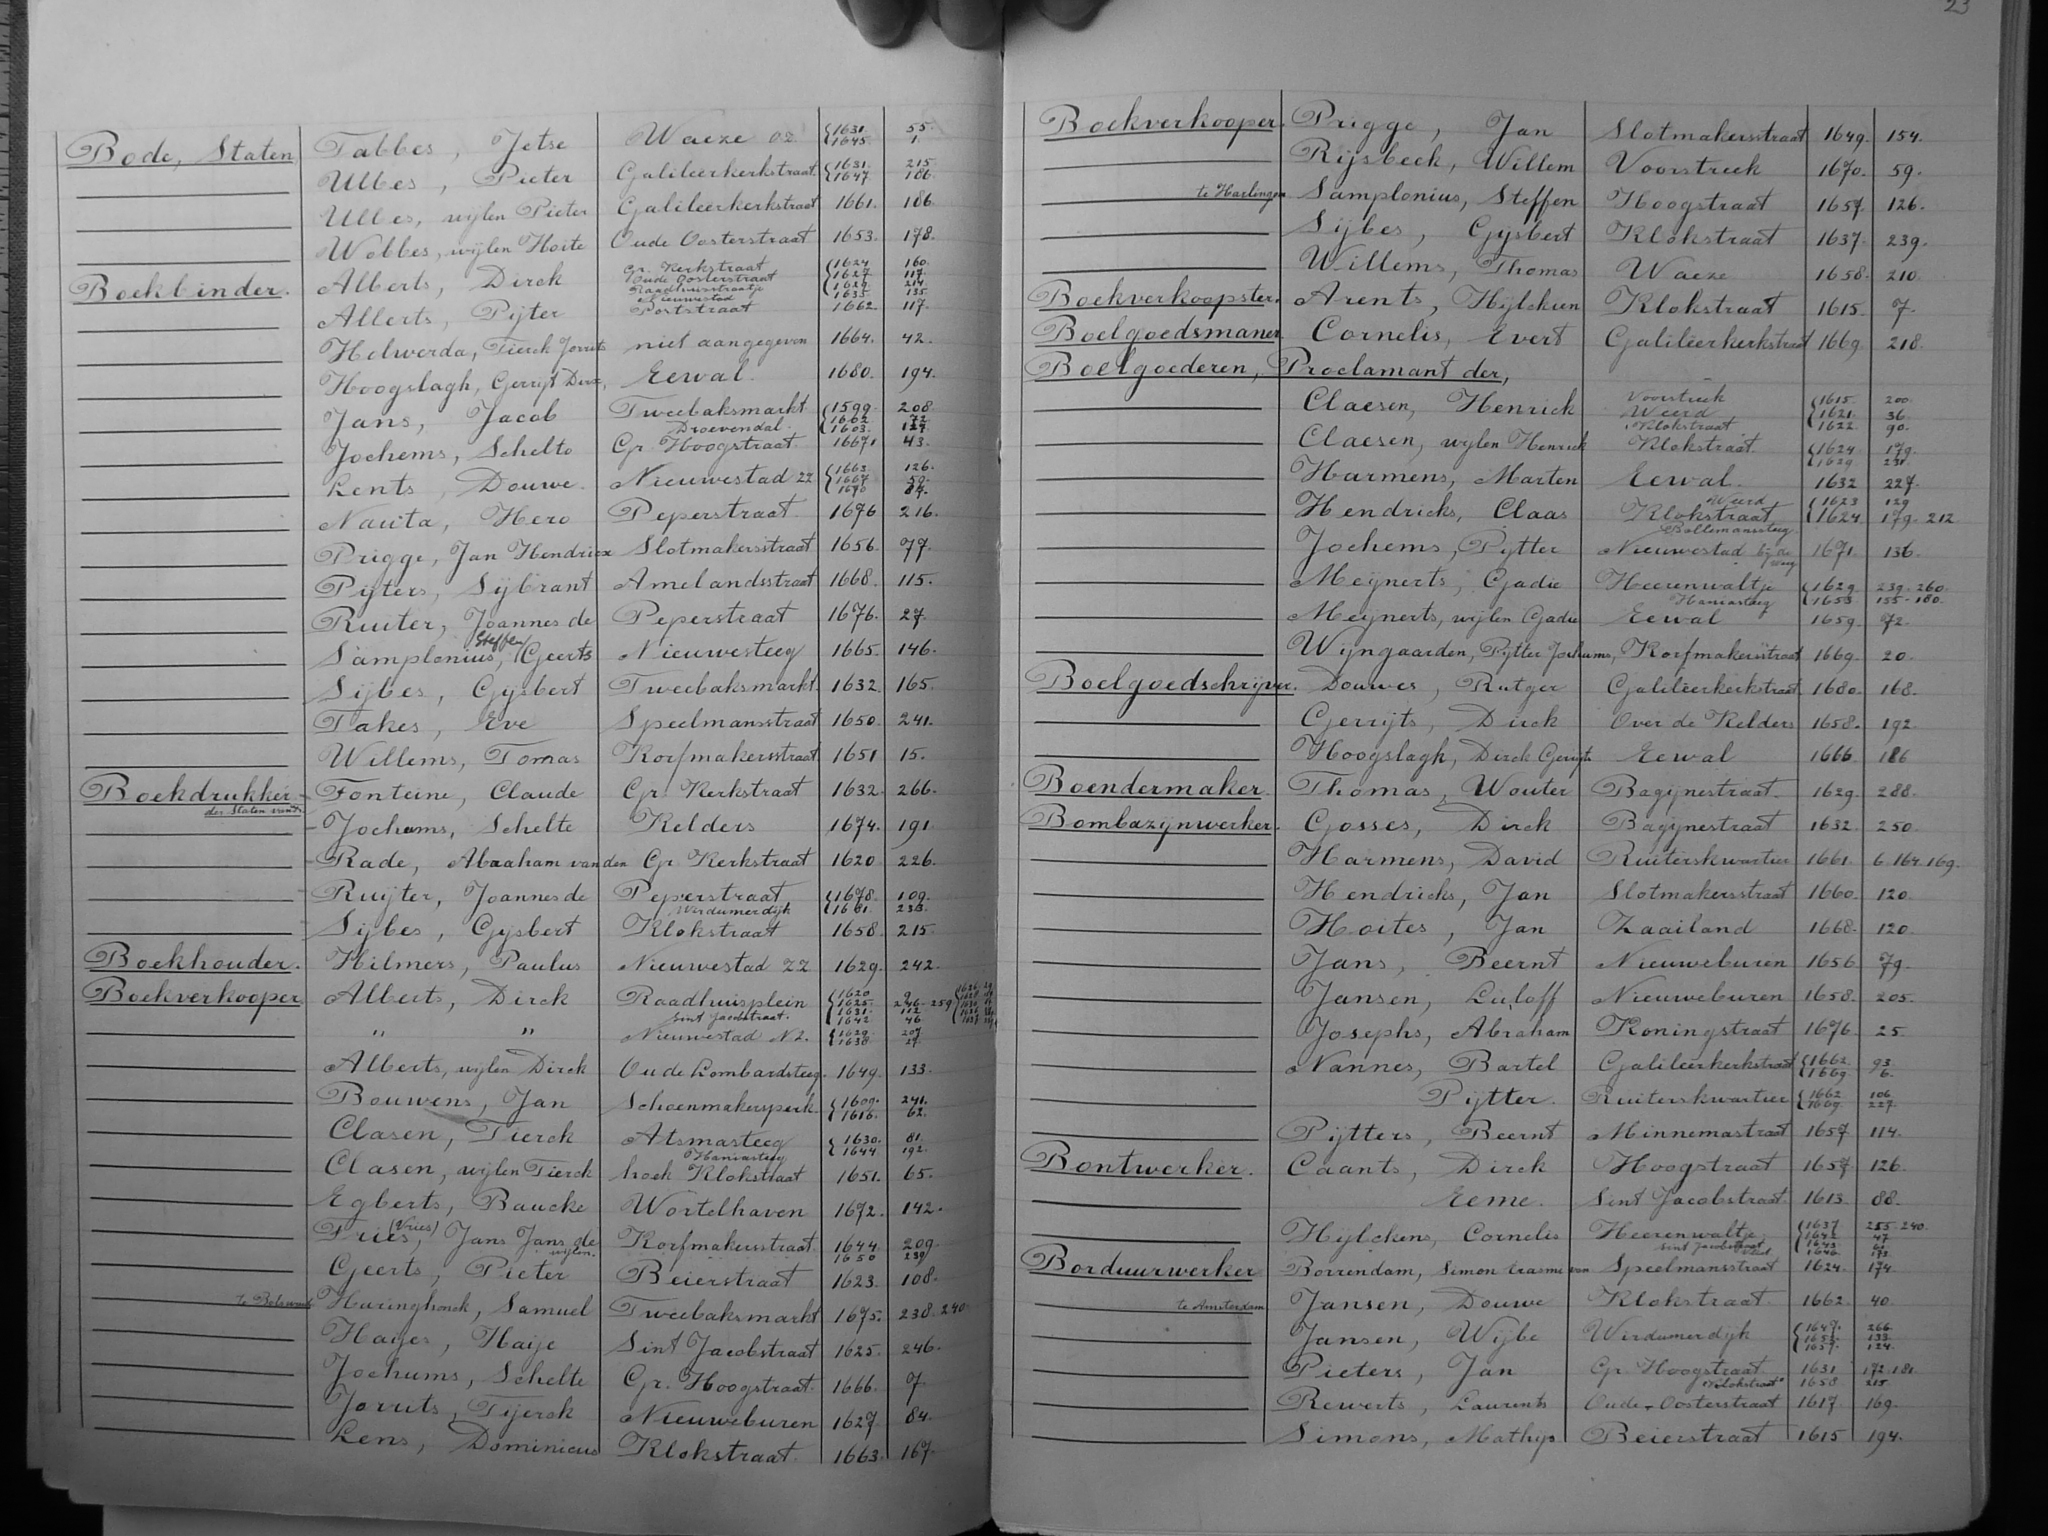 Bode, Staten Tabbes, Jetse Waeze OZ {1631. 55.
{1645. 1.
Ulbes, Pieter Galileërkerkstraat {1631. 215.
{1647. 186.
Ulbes, wijlen Pieter Galileërkerkstraat 1661. 186.
Wobbes, wijlen Hoite Oude Oosterstraat 1653. 178.
Boekbinder. Alberts, Dirck Gr. Kerkstraat {1624 160.
Oude Oosterstraat {1627 117.
Raadhuisstraatje {1629. 214
Nieuwestad {1635. 135.
Alberts, Pijter Poststraat 1662 117.
Helwerda, Tierck Jorrits niet aangegeven 1664. 42.
Hoogslagh, Gerrijt Dircx, Eewal. 1680. 194.
Jans, Jacob Tweebaksmarkt {1599. 208.
{1602. 72
Droevendal. {1603. 127.
Jochems, Schelto Gr. Hoogstraat 1667. 43.
Lents, Douwe. Nieuwestad ZZ {1663. 126.
{1667 59.
{1670 84.
Nauta, Hero Peperstraat 1676 216.
Prigge, Jan Hendricx Slotmakersstraat 1656. 77.
Pijters, Sijbrant Amelandsstraat 1668. 115.
Ruiter, Joannes de Peperstraat 1676. 27.
Steffen
Samplonius, Geerts Nieuwesteeg 1665. 146.
Sijbes, Gijsbert Tweebaksmarkt. 1632. 165.
Takes, Eve Speelmansstraat 1650. 241.
Willems, Tomas Korfmakersstraat 1651 15.
Boekdrukker Fonteine, Claude Gr. Kerkstraat 1632. 266.
der Staten
Jochums, Schelte Kelders 1674. 191
Rade, Abraham van den Gr. Kerkstraat 1620 226.
Ruijter, Joannes de Peperstraat {1678. 109.
Wirdumerdijk {1681. 233.
Sijbes, Gijsbert Klokstraat 1658. 215.
Boekhouder. Hilmers, Paulus Nieuwestad ZZ 1629. 242.
Boekverkooper Alberts, Dirck Raadhuisplein {1620 9
{1625. 246-259
{1631. 112
Sint Jacobstraat. {1642 46
" " Nieuwestad NZ. {1629. 207
{1638 27
Alberts, wijlen Dirck Oude Lombardsteeg. 1649. 133.
Bouwens, Jan Schoenmakersperk {1609. 241.
{1616. 62.
Clasen, Tierck Atsmasteeg {1630. 81.
Haniasteeg {1644. 192.
Clasen, wijlen Tierck hoek Klokstraat 1651. 65.
Egberts, Baucke Wortelhaven 1672. 142.
(Vries)
Fries, Jans Jans de Korfmakersstraat 1644. 209.
wijlen. 1650 239
Geerts, Pieter Beierstraat 1623. 108.
te Bolsward Haringhouck, Samuel Tweebaksmarkt 1675. 238. 240.
Haijes, Haije Sint Jacobstraat 1625. 246.
Jochums, Schelte Gr. Hoogstraat. 1666. 7.
Jorrits, Tijerck Nieuweburen 1627 84.
Lens, Dominicus Klokstraat. 1663. 167.
23
Boekverkooper. Prigge, Jan Slotmakersstraat 1649. 154.
Rijsbeek, Willem Voorstreek 1670. 59.
te Harlingen Samplonius, Steffen Hoogstraat 1657. 126.
Sijbes, Gijsbert Klokstraat 1637. 239.
Willems, Thomas Waeze 1658. 210.
Boekverkoopster. Arents, Hijlckien Klokstraat 1615. 7.
Boelgoedsmaner Cornelis, Evert Galileërkerkstraat 1669. 218.
Boelgoederen, Proclamant der,
Claesen, Henrick Voorstreek {1615. 200.
Weerd {1621. 36.
Klokstraat {1622. 90.
Claesen, wijlen Henrick Klokstraat. {1624. 179.
{1629. 231.
Harmens, Marten Eewal. 1632 227.
Hendricks, Claas Weerd {1623 129
Klokstraat {1624. 179. 212
Bollemanssteeg.
Jochems, Pijtter Nieuwestad bij de Waag 1671. 136.
Meijnerts, Gadie Heerenwaltje {1629. 239. 260.
Haniasteeg {1653. 155-180.
Meijnerts, wijlen Gadie Eewal 1659. 72.
Wijngaarden, Pijtter Jochums, Korfmakersstraat 1669. 20.
Boelgoedschrijver. Douwes, Rutger Galileërkerkstraat. 1680. 168.
Gerrijts, Dirck Over de Kelders 1658. 192.
Hoogslagh, Dirck Gerrijts Eewal 1666. 186
Boendermaker. Thomas, Wouter Bagijnestraat. 1629. 288.
Bombazijnwerker. Gosses, Dirck Bagijnestraat 1632. 250.
Harmens, David Ruiterskwartier 1661. 6. 164. 169.
Hendricks, Jan Slotmakersstraat 1660. 120.
Hoites, Jan Zaailand 1668. 120
Jans, Beernt Nieuweburen 1656 79.
Jansen, Luloff Nieuweburen 1658. 205.
Josephs, Abraham Koningstraat 1676. 25.
Nannes, Bartel Galileërkerkstraat {1662. 93.
{1669. 6.
Pijtter. Ruiterskwartier {1662. 106.
{1669. 227.
Pijtters, Beernt Minnemastraat 1657 114.
Bontwerker. Caants, Dirck Hoogstraat 1657 126.
Eeme. Sint Jacobstraat. 1613. 88.
Hijlckens, Cornelis Heerenwaltje {1637. 255. 240.
{1642. 47
Sint Jacobstraat {1643. 61.
1646. 173.
Borduurwerker Borrendam, Simon Erasmus van Speelmansstraat 1624. 174.
te Amsterdam Jansen, Douwe Klokstraat. 1662. 40.
Jansen, Wijbe Wirdumerdijk {1647. 266.
{1653. 133.
{1657. 124.
Pieters, Jan Gr. Hoogstraat. 1631. 172. 181.
Klokstraat 1658 215
Rewerts, Laurents Oude-Oosterstraat 1617. 169.
Simons, Mathijs Beierstraat 1615 194.